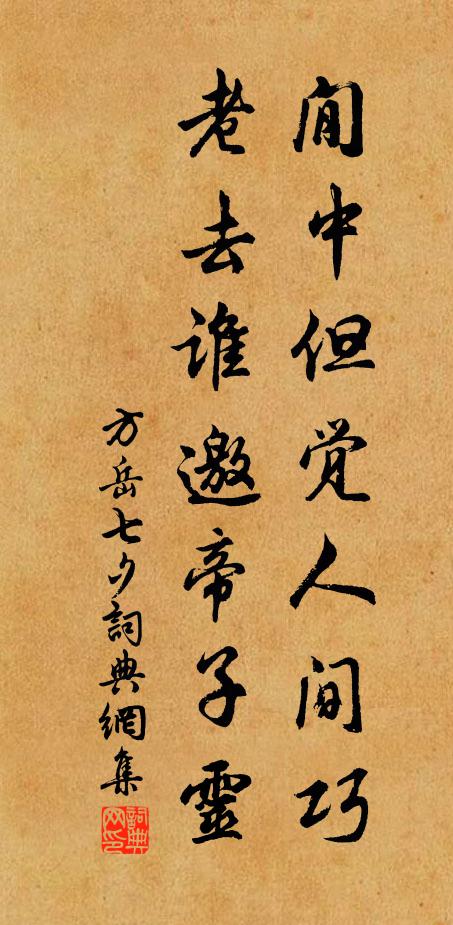 闲中但觉人间巧
老去谁邀帝子靈
方岳七夕詞典網集
詞典网印